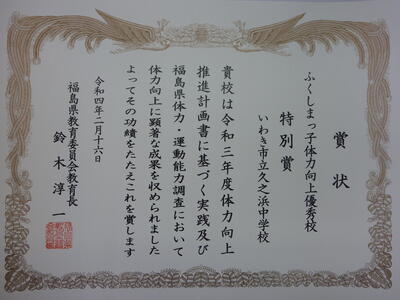 賞状
ふくしまっ子体力向上優秀校
特別賞
いわき市立久之浜中学校
貴校は令和三年度体力向上
推進計画書に基づく実践及び
福島県体力・運動能力調査において
体力向上に顕著な成果を収められました
よってその功績をたたえこれを賞します
令和四年二月十六日
福島県教育委員会教育長
鈴木淳一